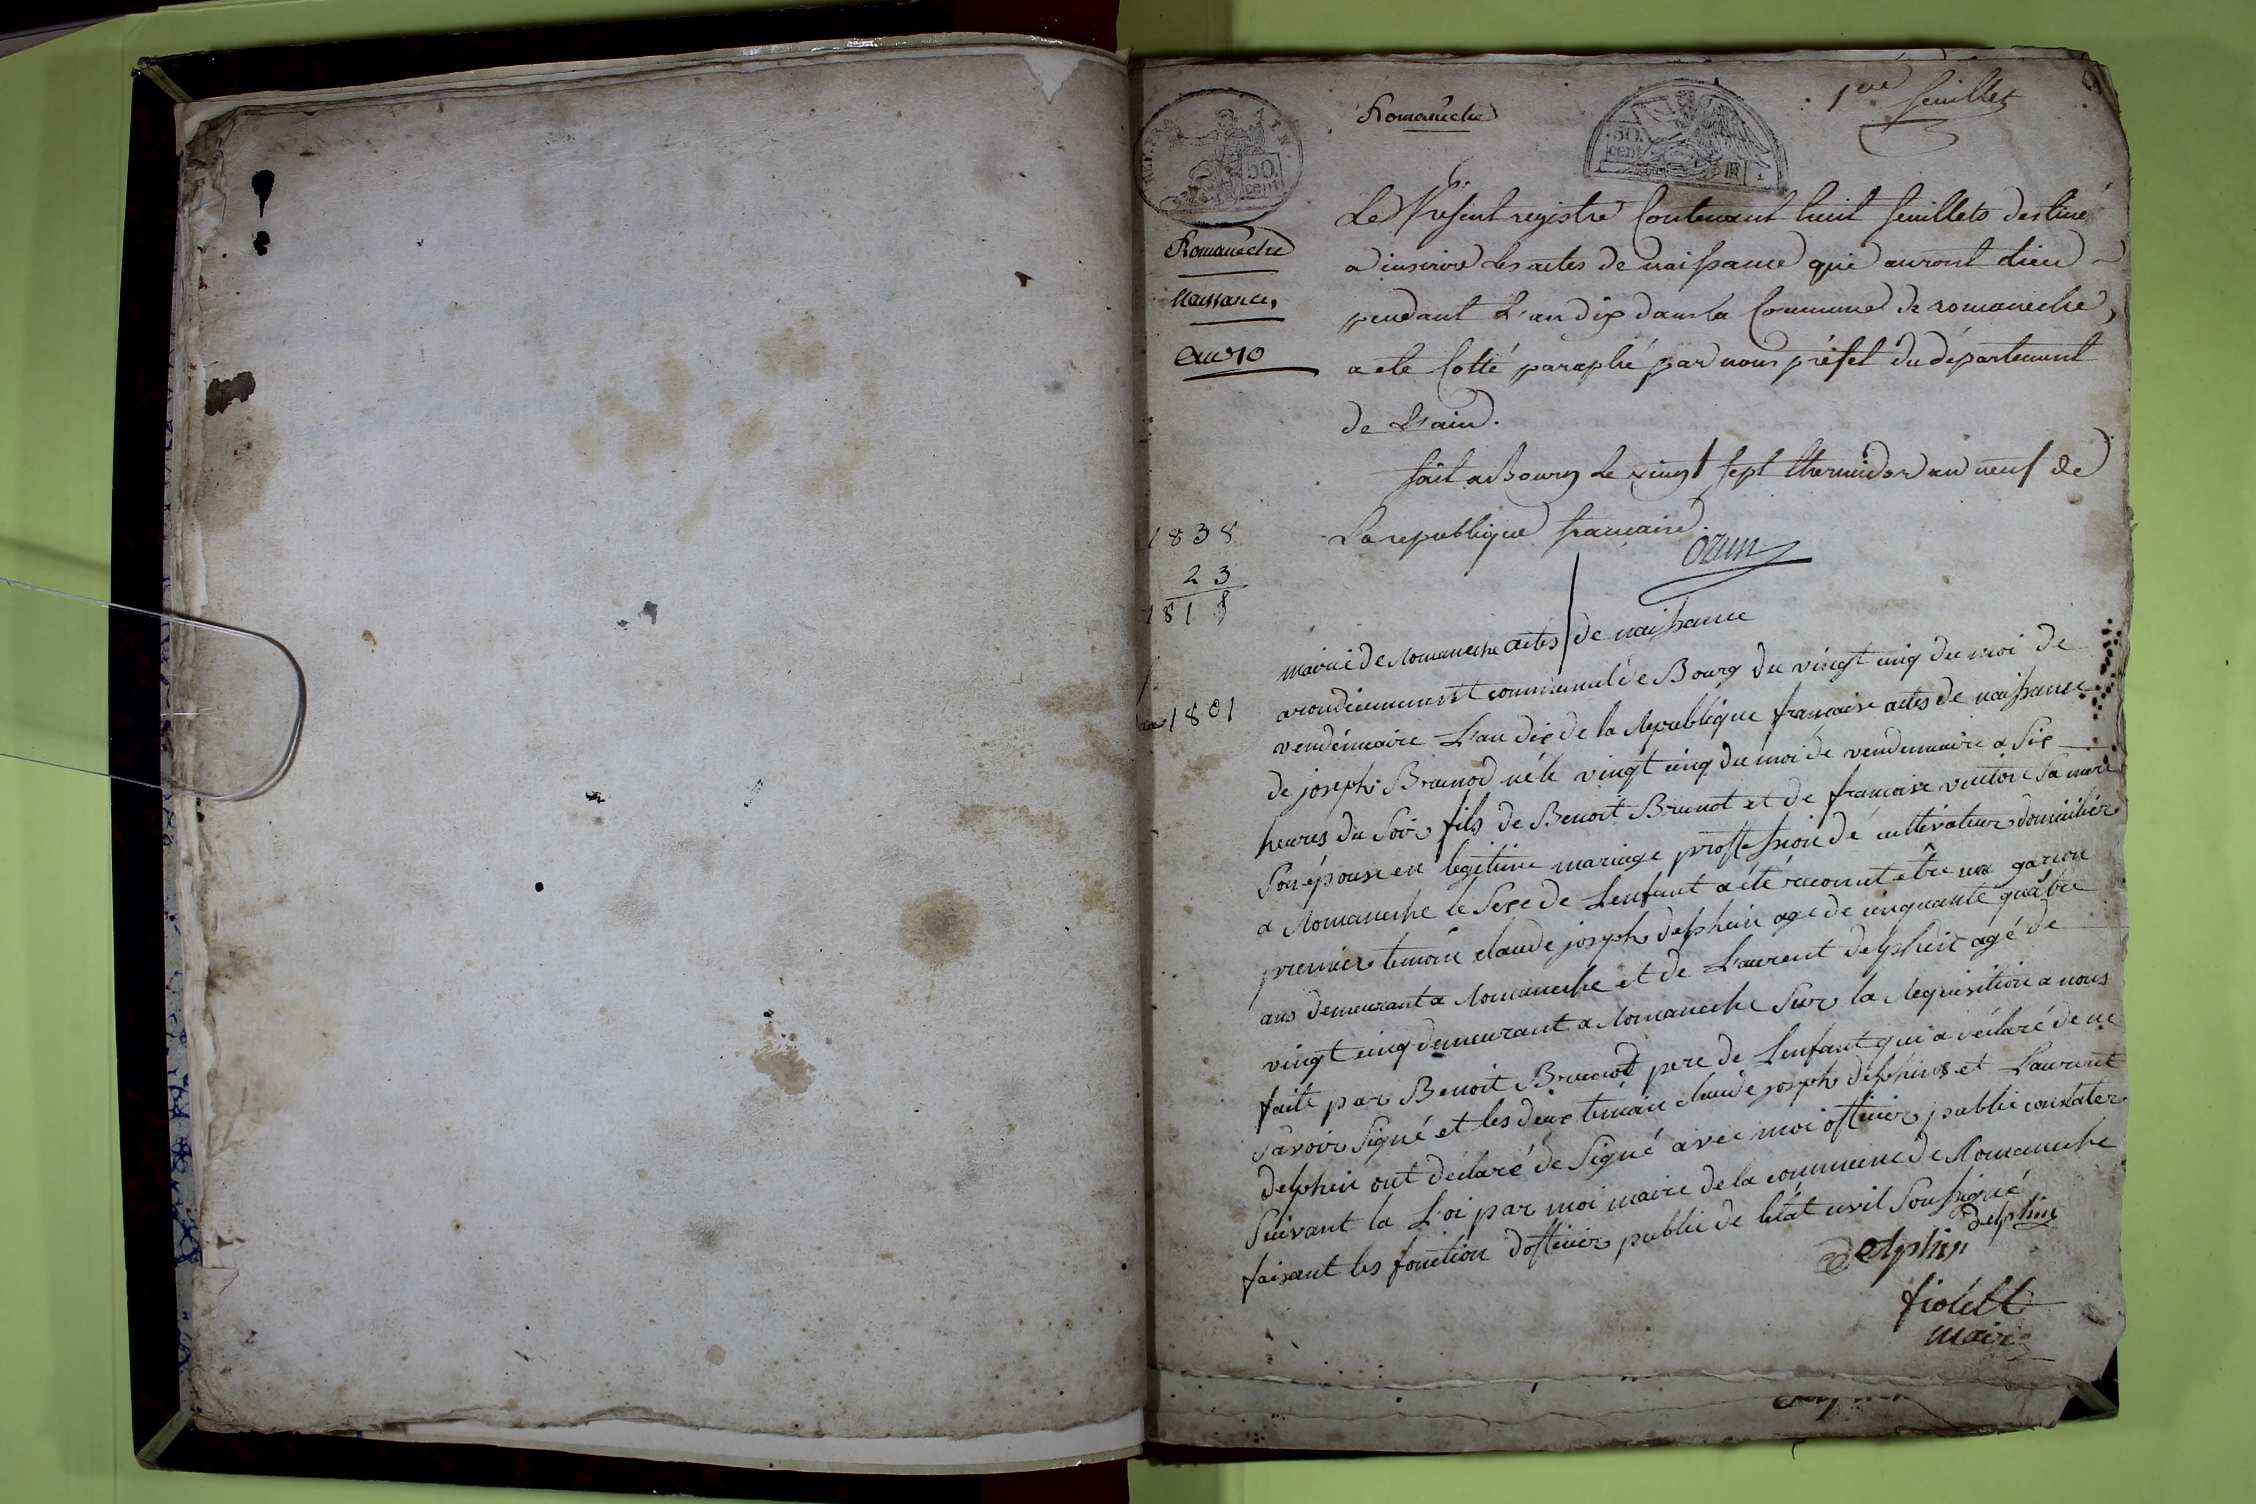 Romanêche
1ere feuillet
REP. FRA
50.
cent
50.
cent
Romanêche
Naissances
An 10
Le Présent registre Contenant huit feuillets destiné
a inscrire les actes de naissance qui auront lieu
pendant L'an dix dans la Commune de romaneche,
a ete Cotté paraphé par nous préfet du département
de L'ain.
fait a Bourg Le vingt sept thermidor an neuf de
La republique francaise.
Ozun
1838
23
1818
1801
mairie de Romaneche actes de naissance
arondicement communal de Bourg du vingt cinq du moi de
vendémiaire L'an dix de la Republique française actes de naissance
de joseph Brunod né le vingt cinq du moi de vendemiaire a six
heures du soir fils de Benoit Brunot et de francoise sa mere
son épouse en legitime mariage proffession de cultivateur domicilier
a Romaneche le sexe de Lenfant a été reconnut être un garcon
premier temoin claude joseph delphin age de cinquante quatre
ans demeurant a Romaneche et de Laurent delphin agé de
vingt cinq demeurant a Romaneche sur la Requisition a nous
faite par Benoit Brunot pere de Lenfant qui a déclaré de ne
savoir signé et les deux temoin claude joseph delphin et Laurent
delphin ont déclaré de signé avec moi officier public constater
suivant la Loi par moi maire de la commune de Romaneche
faisant les fonction dofficier public de letat civil soussigné
delphin
delphin
fiolett
maire